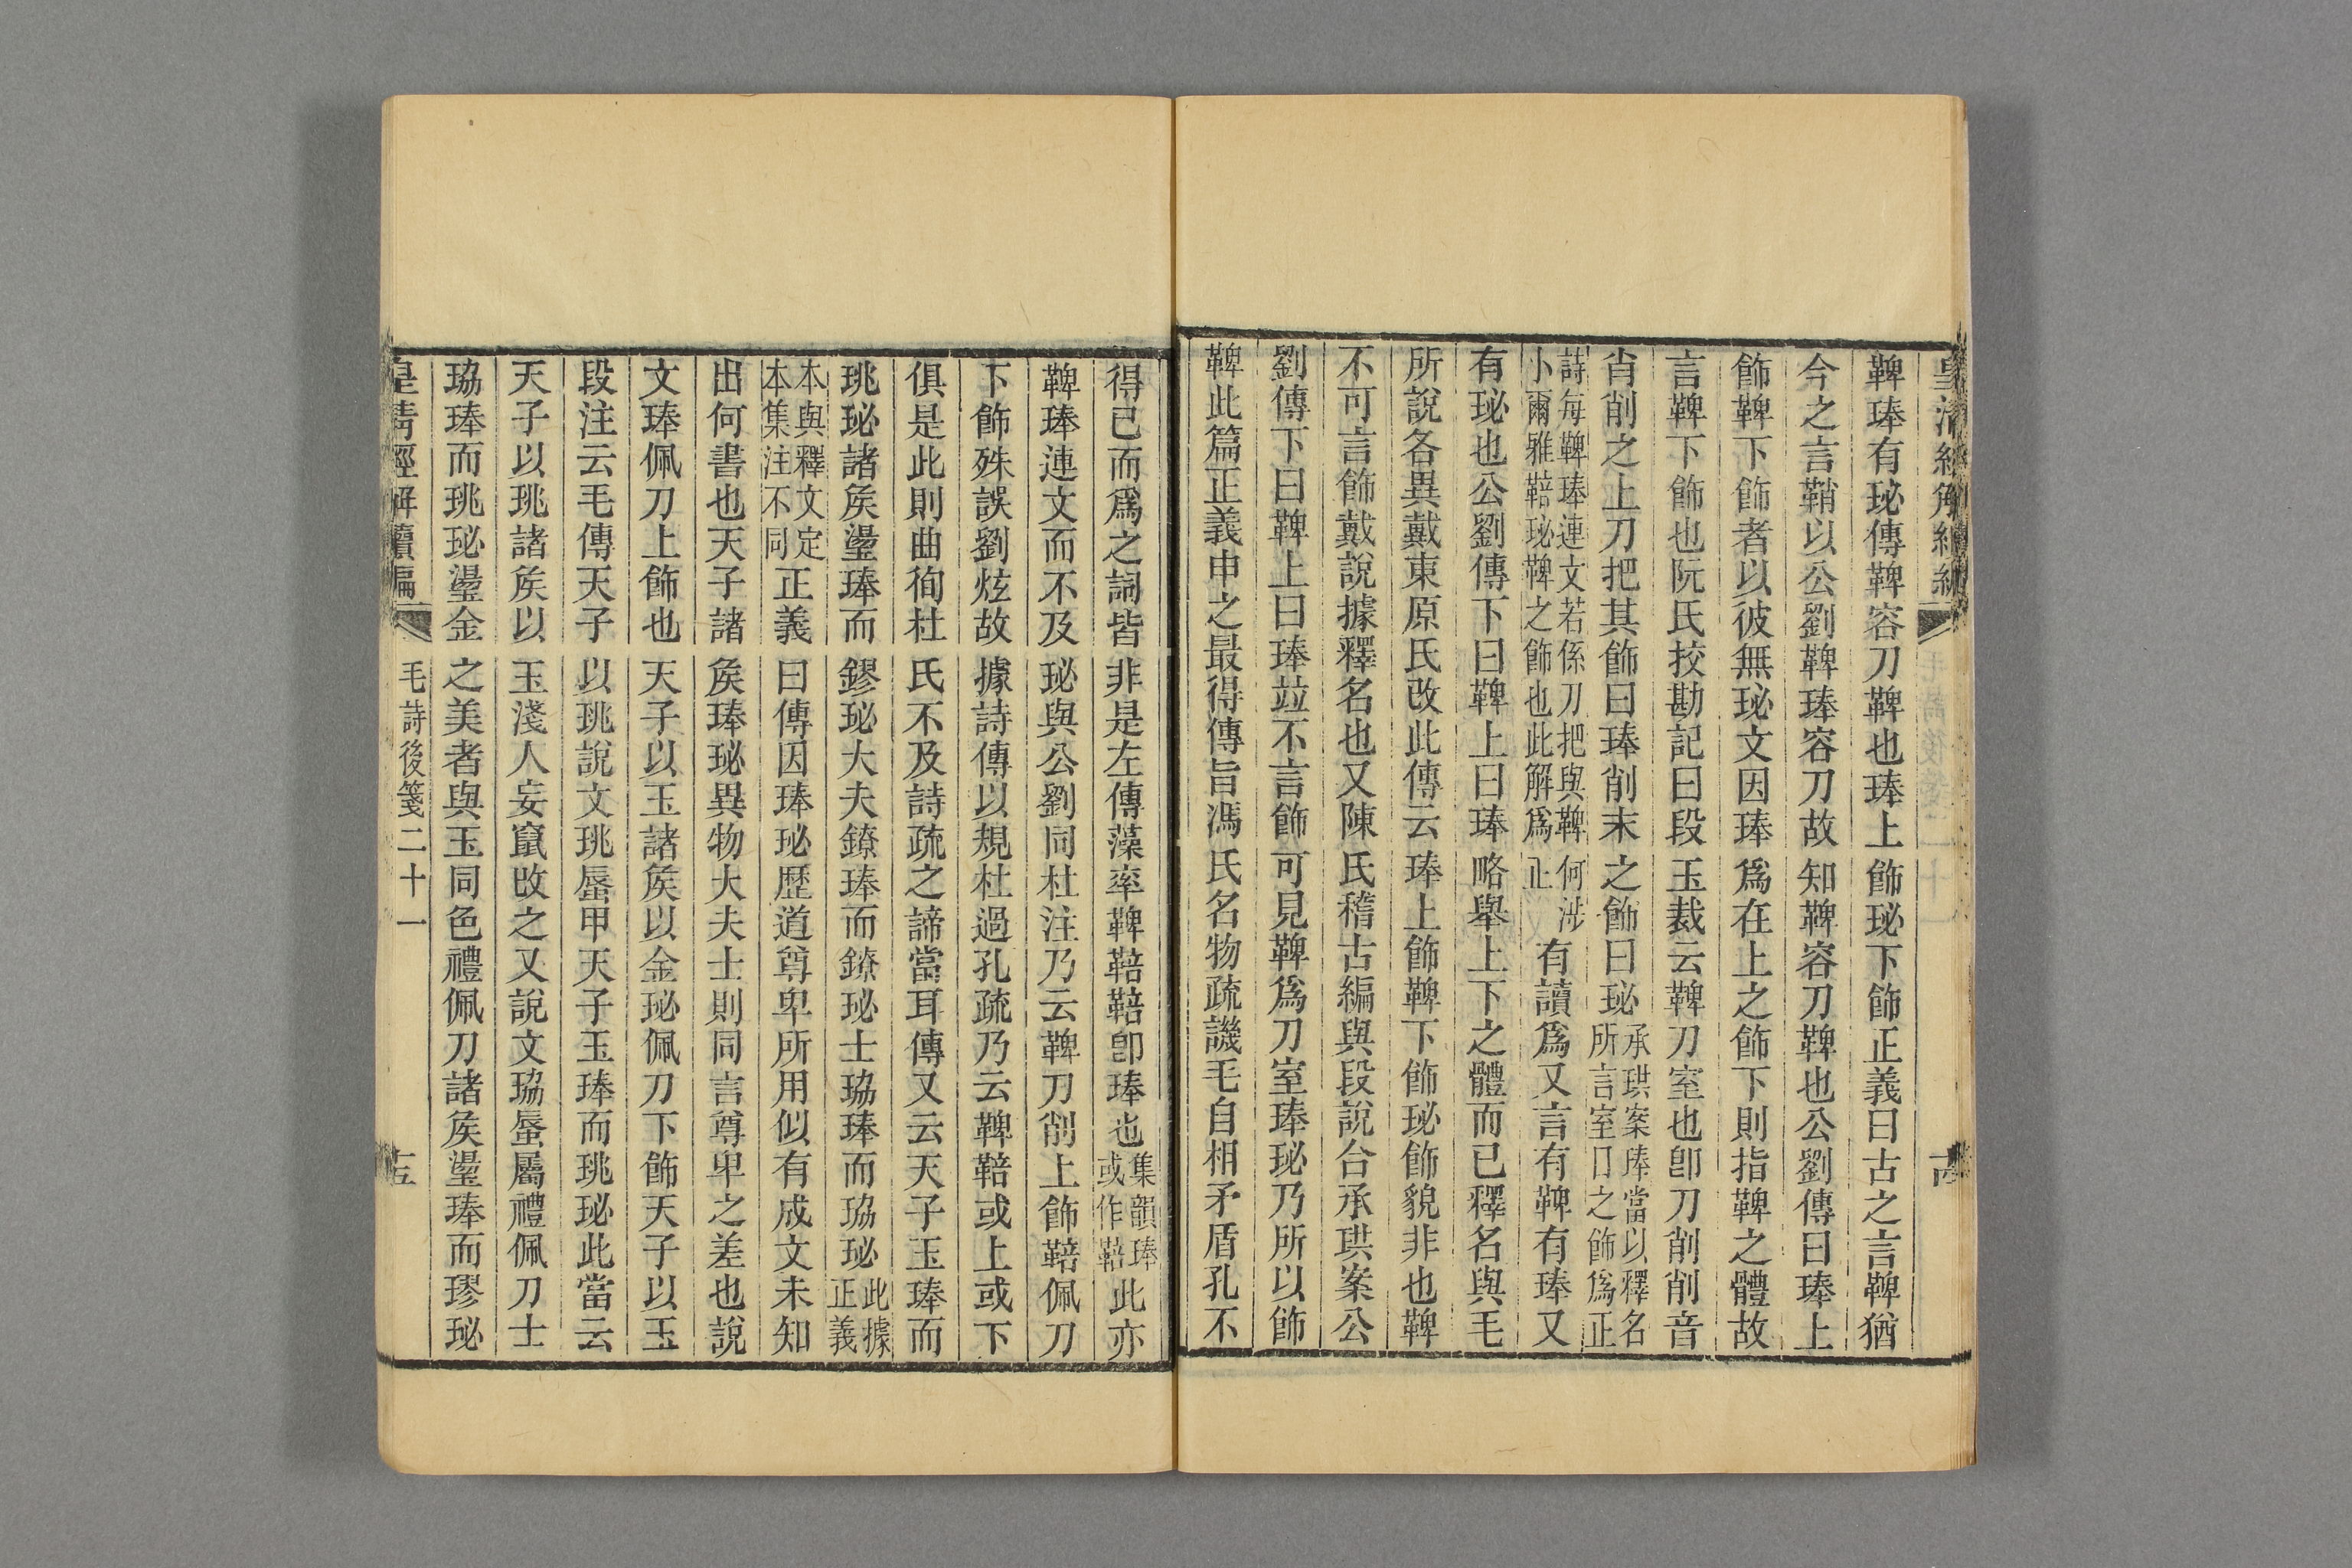 皇清經解續編
十四
鞞琫有珌傳鞞容刀鞞也琫上飾珌下飾正義曰古之言鞞猶
今之言鞘以公劉鞞琫容刀故知鞞容刀鞞也公劉傳曰琫上
飾鞞下飾者以彼無珌文因琫爲在上之飾下則指鞞之體故
言鞞下飾也阮氏挍勘記曰段玉裁云鞞刀室也卽刀削削音
肖削之上刀把其飾曰琫削末之飾曰珌承珙案琫當以釋名所言室口之飾爲正
詩每鞞琫連文若係刀把與鞞何涉小爾雅鞛珌鞞之飾也此解爲正有讀爲又言有鞞有琫又
有珌也公劉傳下曰鞞上曰琫略舉上下之體而已釋名與毛
所說各異戴東原氏改此傳云琫上飾鞞下飾珌飾貌非也鞞
不可言飾戴說據釋名也又陳氏稽古編與段說合承珙案公
劉傳下曰鞞上曰琫竝不言飾可見鞞爲刀室琫珌乃所以飾
鞞此篇正義申之最得傳旨馮氏名物疏譏毛自相矛盾孔不
得已而爲之詞皆非是左傳藻率鞞鞛鞛卽琫也集韻琫或作鞛此亦
鞞琫連文而不及珌與公劉同杜注乃云鞞刀削上飾鞛佩刀
下飾殊誤劉炫故據詩傳以規杜過孔疏乃云鞞鞛或上或下
俱是此則曲徇杜氏不及詩疏之諦當耳傳又云天子玉琫而
珧珌諸矦璗琫而鏐珌大夫鐐琫而鐐珌士珕琫而珕珌此據正義
本與釋文定本集注不同正義曰傳因琫珌歷道尊卑所用似有成文未知
出何書也天子諸矦琫珌異物大夫士則同言尊卑之差也說
文琫佩刀上飾也天子以玉諸矦以金珌佩刀下飾天子以玉
段注云毛傳天子以珧說文珧蜃甲天子玉琫而珧珌此當云
天子以珧諸矦以玉淺人妄竄改之又說文珕蜃屬禮佩刀士
珕琫而珧珌璗金之美者與玉同色禮佩刀諸矦璗琫而璆珌
皇清經解續編
毛詩後箋二十一
十五